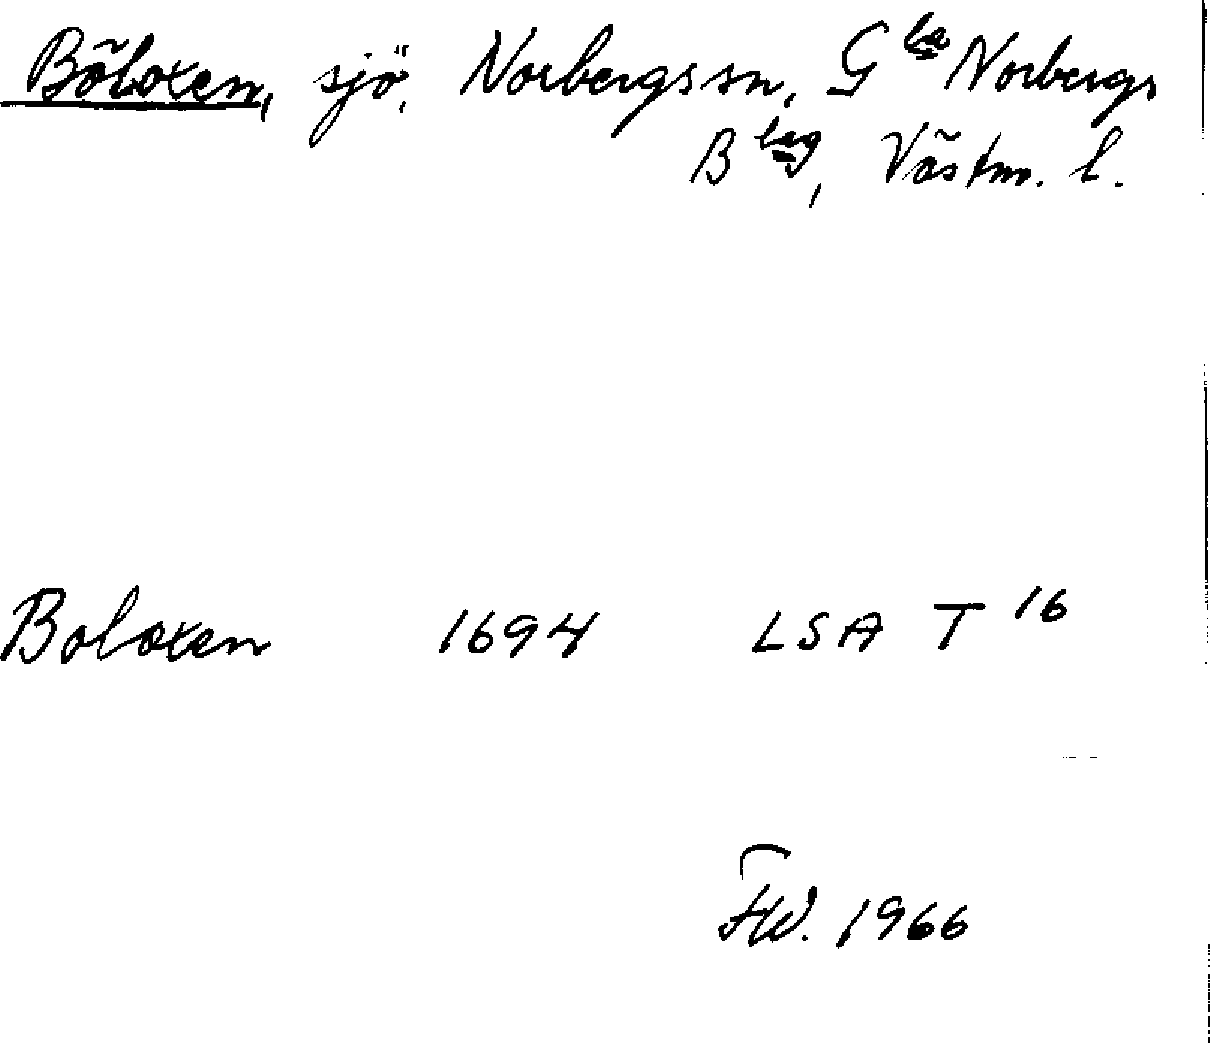 Böloxen, sjö, Norbergs sn, G la Norbergs
B lag, Västm. l.
Boloxen 1694 LSA T 16
FW. 1966